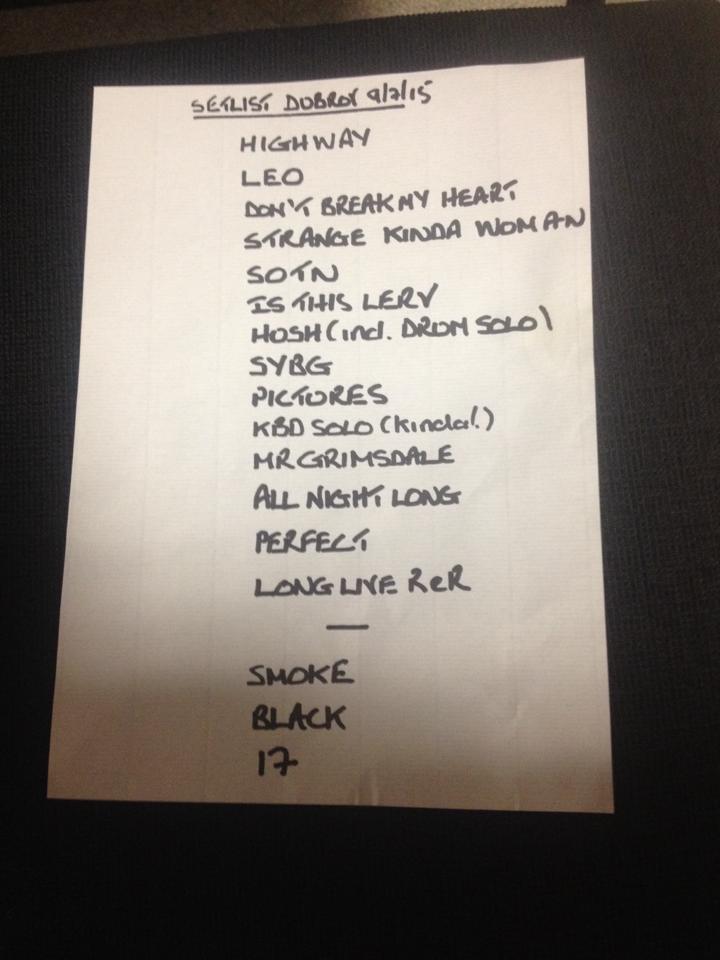 SETLIST DUBROV 9/7/15
HIGHWAY
LEO
DON'T BREAK MY HEART
STRANGE KINDA WOMAN
SOTN
IS THIS LERV
HUSH (incl. DRUM SOLO)
SYBG
PICTURES
KBD SOLO (kinda!)
MR GRIMSDALE
ALL NIGHT LONG
PERFECT
LONG LIVE RnR
—
SMOKE
BLACK
17